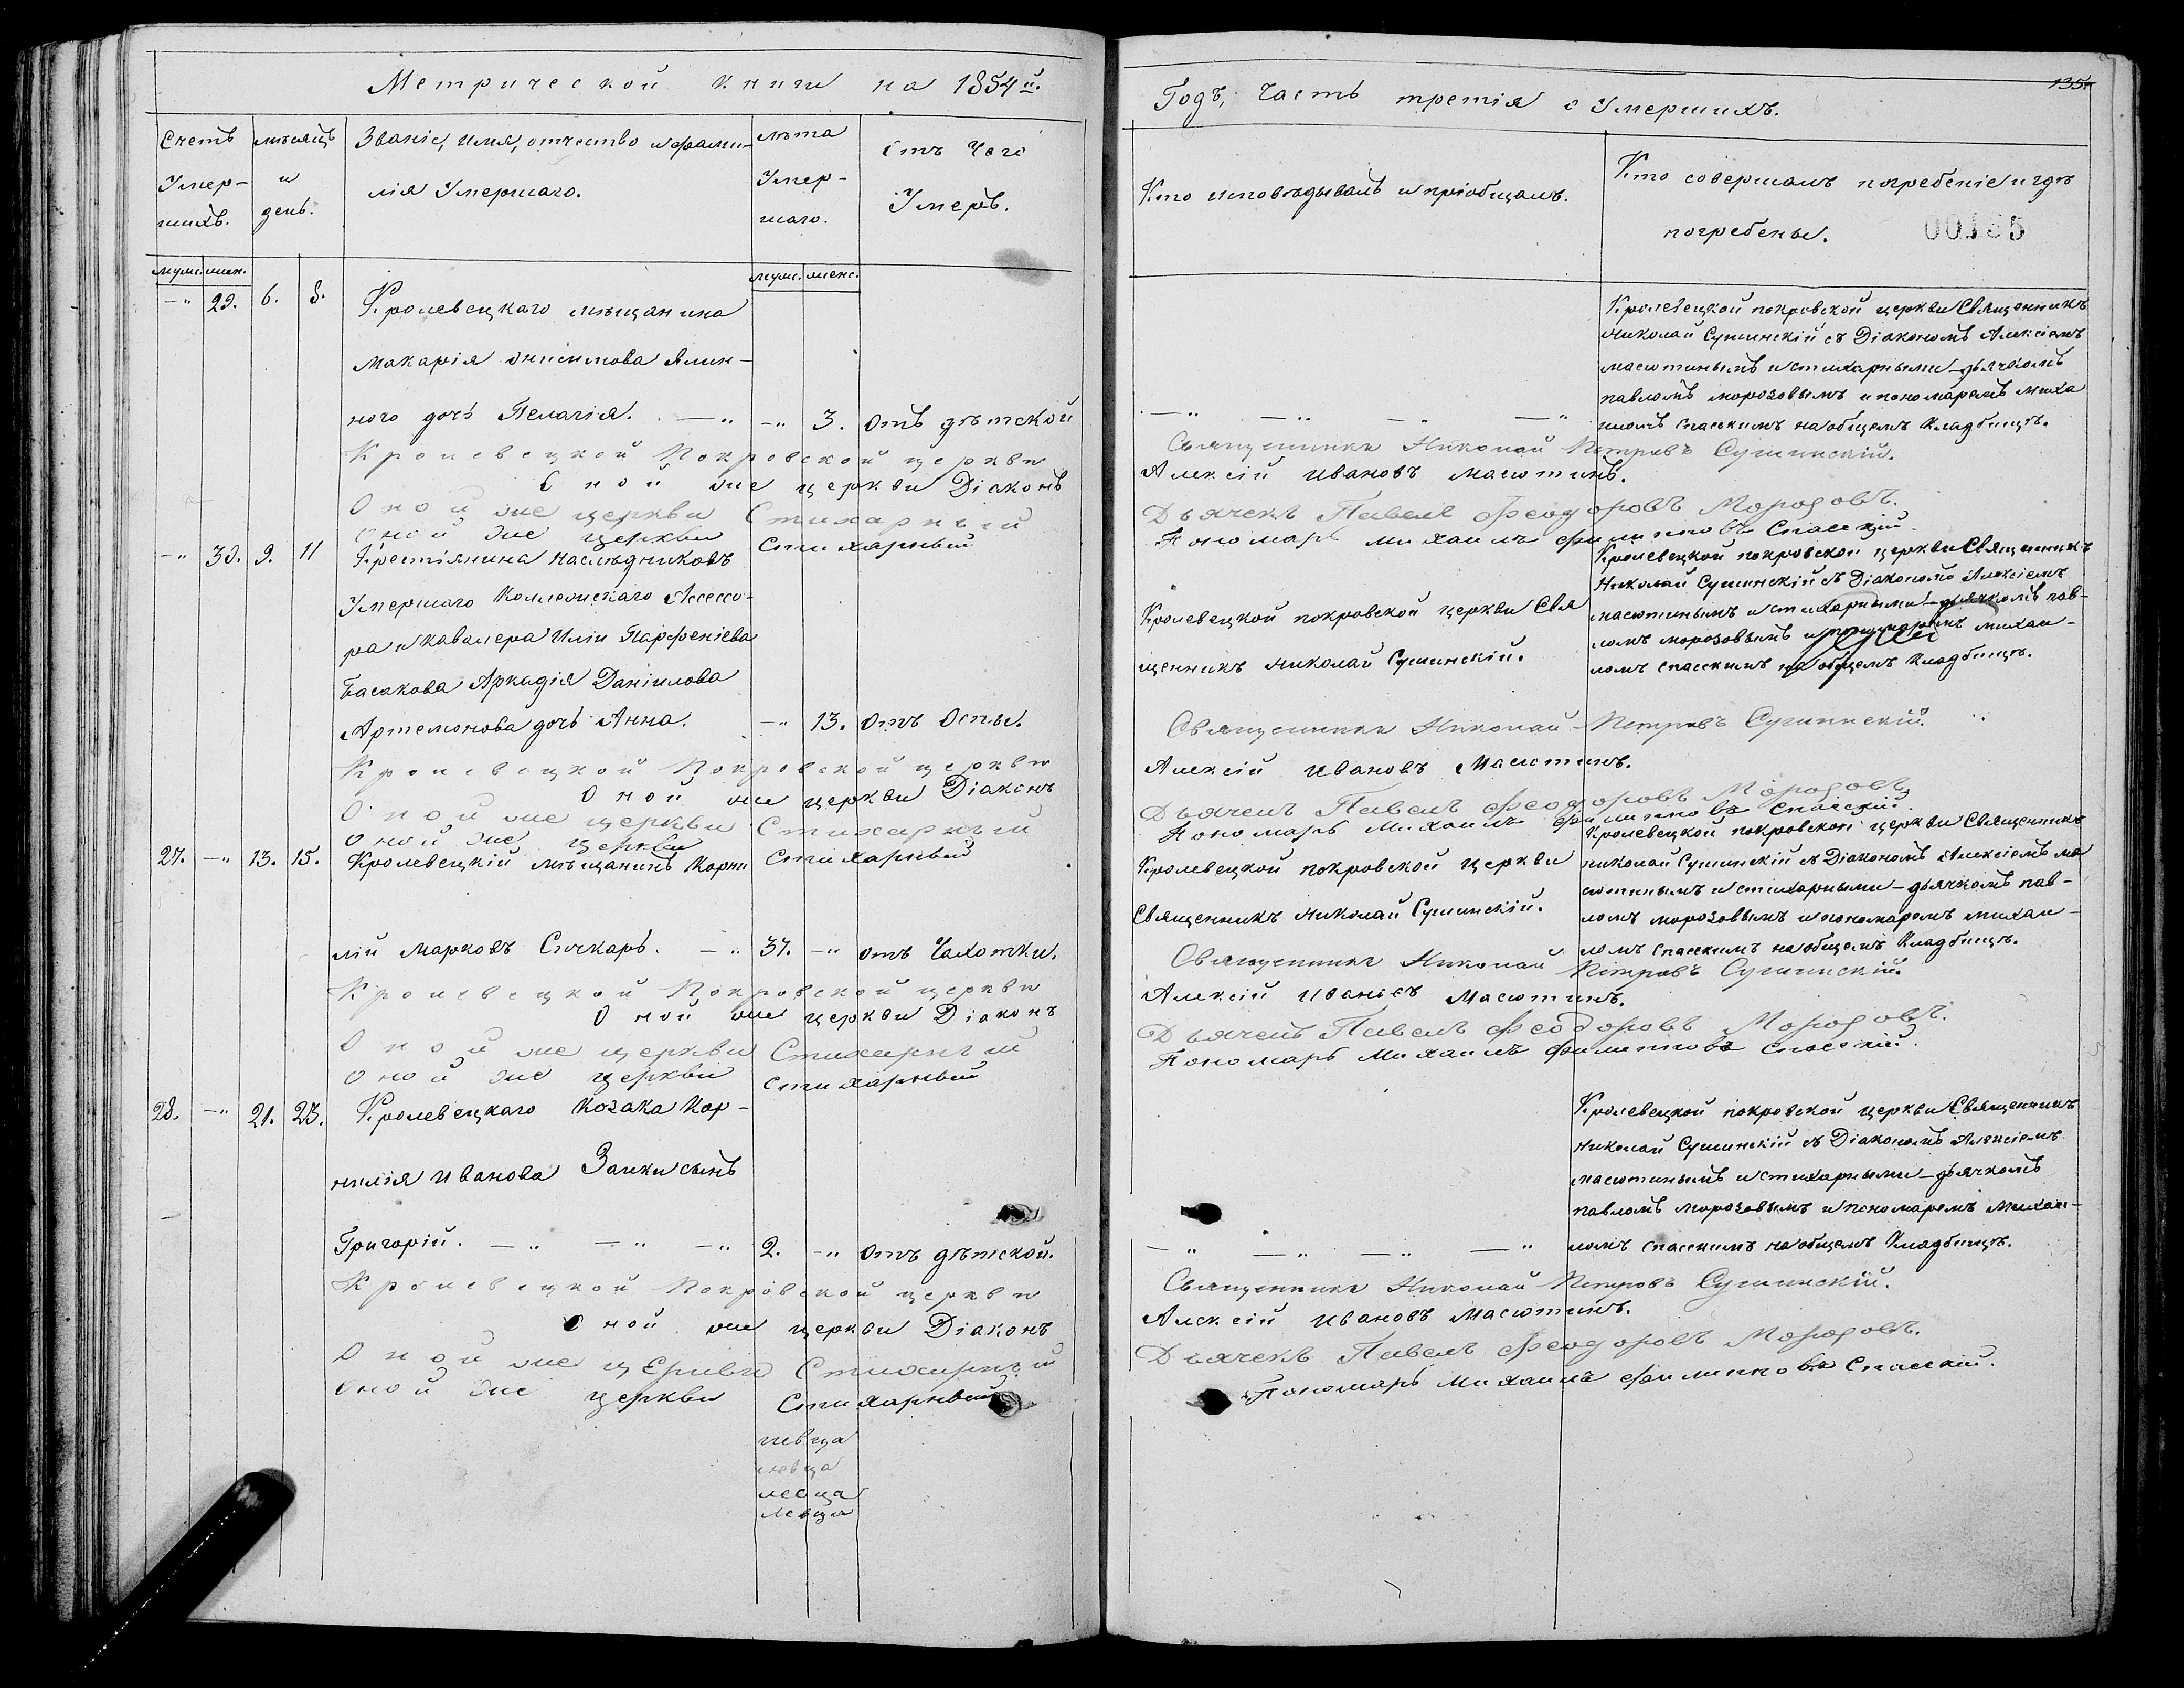 Метрической книги на 1854й.
Годъ, Часть третія о Умершихъ.
135.
00135
Счетъ Умер-
шихъ.
мѣсяцъ
и
день.
Званіе, имя, отчество и фами-
лія Умершаго.
лѣта
Умер-
шаго.
отъ Чего
Умеръ.
Кто исповѣдывалъ и пріобщалъ.
Кто совершалъ погребеніе и гдѣ
погребены.
муж. жен.
муж. жен.
-" 29. 6. 8. Кролевецкаго мѣщанина
Макарія Онисимова Ялин-
ного дочь Пелагія. -" -" 3. Отъ дѣтской
-" -" -" -"
Кролевецкой покровской церкви Священникъ
Николай Сушинскій съ Діакономъ Алексіемъ
масютинымъ и стихарными-дьячкомъ
павломъ морозовымъ и пономаремъ Миха
иломъ спасскимъ на общемъ Кладбищѣ.
Кролевецкой Покровской церкви Священникъ Николай Петровъ Сушинскій.
Оной же церкви Діаконъ Алексій Ивановъ Масютинъ.
Оной же церкви Стихарный Дьячекъ Павелъ Феодоровъ Морозовъ.
Оной же церкви Стихарный Пономарь Михаилъ Филипповъ Спасскій.
-" 30. 9. 11 Крестіянина наслѣдниковъ
Умершаго Коллежскаго Ассесо-
ра и кавалера Иліи Парфеніева
Басакова Аркадія Даніилова
Артемонова дочь Анна. -" 13. Отъ Оспы.
Кролевецкой покровской церкви Свя
щенникъ Николай Сушинскій.
Кролевецкой покровской церкви Священникъ
Николай Сушинскій съ Діакономъ Алексіемъ
масютинымъ и стихарными-дьячкомъ пав-
ломъ морозовымъ и пономаремъ михаи-
ломъ спасскимъ на общемъ Кладбищѣ.
Кролевецкой Покровской церкви Священникъ Николай Петровъ Сушинскій.
Оной же церкви Діаконъ Алексій Ивановъ Масютинъ.
Оной же церкви Стихарный Дьячекъ Павелъ Феодоровъ Морозовъ
Оной же церкви Стихарный Пономарь Михаилъ Филипповъ Спасскій.
27. -" 13. 15. Кролевецкій мѣщанинъ Корни
лій Марковъ Сичкарь. -" 37. -" отъ Чахотки.
Кролевецкой покровской церкви
Священникъ Николай Сушинскій.
Кролевецкой покровской церкви Священникъ
николай Сушинскій съ Діакономъ Алексіемъ ма
сютинымъ и стихарными-дьячкомъ пав-
ломъ морозовымъ и пономаремъ михаи-
ломъ спасскимъ на общемъ Кладбищѣ.
Кролевецкой Покровской церкви Священникъ Николай Петровъ Сушинскій.
Оной же церкви Діаконъ Алексій Ивановъ Масютинъ.
Оной же церкви Стихарный Дьячекъ Павелъ Феодоровъ Морозовъ.
Оной же церкви стихарный Пономарь Михаилъ Филипповъ Спасскій.
28. -" 21. 23. Кролевецкаго Козака Кор-
нилія Иванова Заики сынъ
Григорій. -" -" -" 2. -" Отъ дѣтской.
-" -" -" -"
Кролевецкой покровской церкви Священникъ
Николай Сушинскій съ Діакономъ Алексіемъ
масютинымъ и стихарными-дьячкомъ
павломъ морозовымъ и пономаремъ Михаи-
ломъ спасскимъ на общемъ Кладбищѣ.
Кролевецкой Покровской церкви Священникъ Николай Петровъ Сушинскій.
Оной же церкви Діаконъ Алексій Ивановъ Масютинъ.
Оной же церкви Стихарный Дьячекъ Павелъ Феодоровъ Морозовъ.
Оной же церкви Стихарный Пономарь Михаилъ Филипповъ Спасскій.